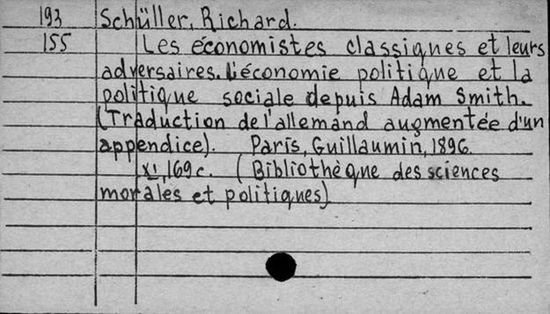 193 Schüller, Richard.
155 Les économistes classiques et leurs
adversaires. L'économie politique et la
politique sociale depuis Adam Smith.
(Traduction de l'allemand augmentée d'un
appendice). Paris, Guillaumin, 1896.
XI, 169 c. (Bibliothèque des sciences
morales et politiques)